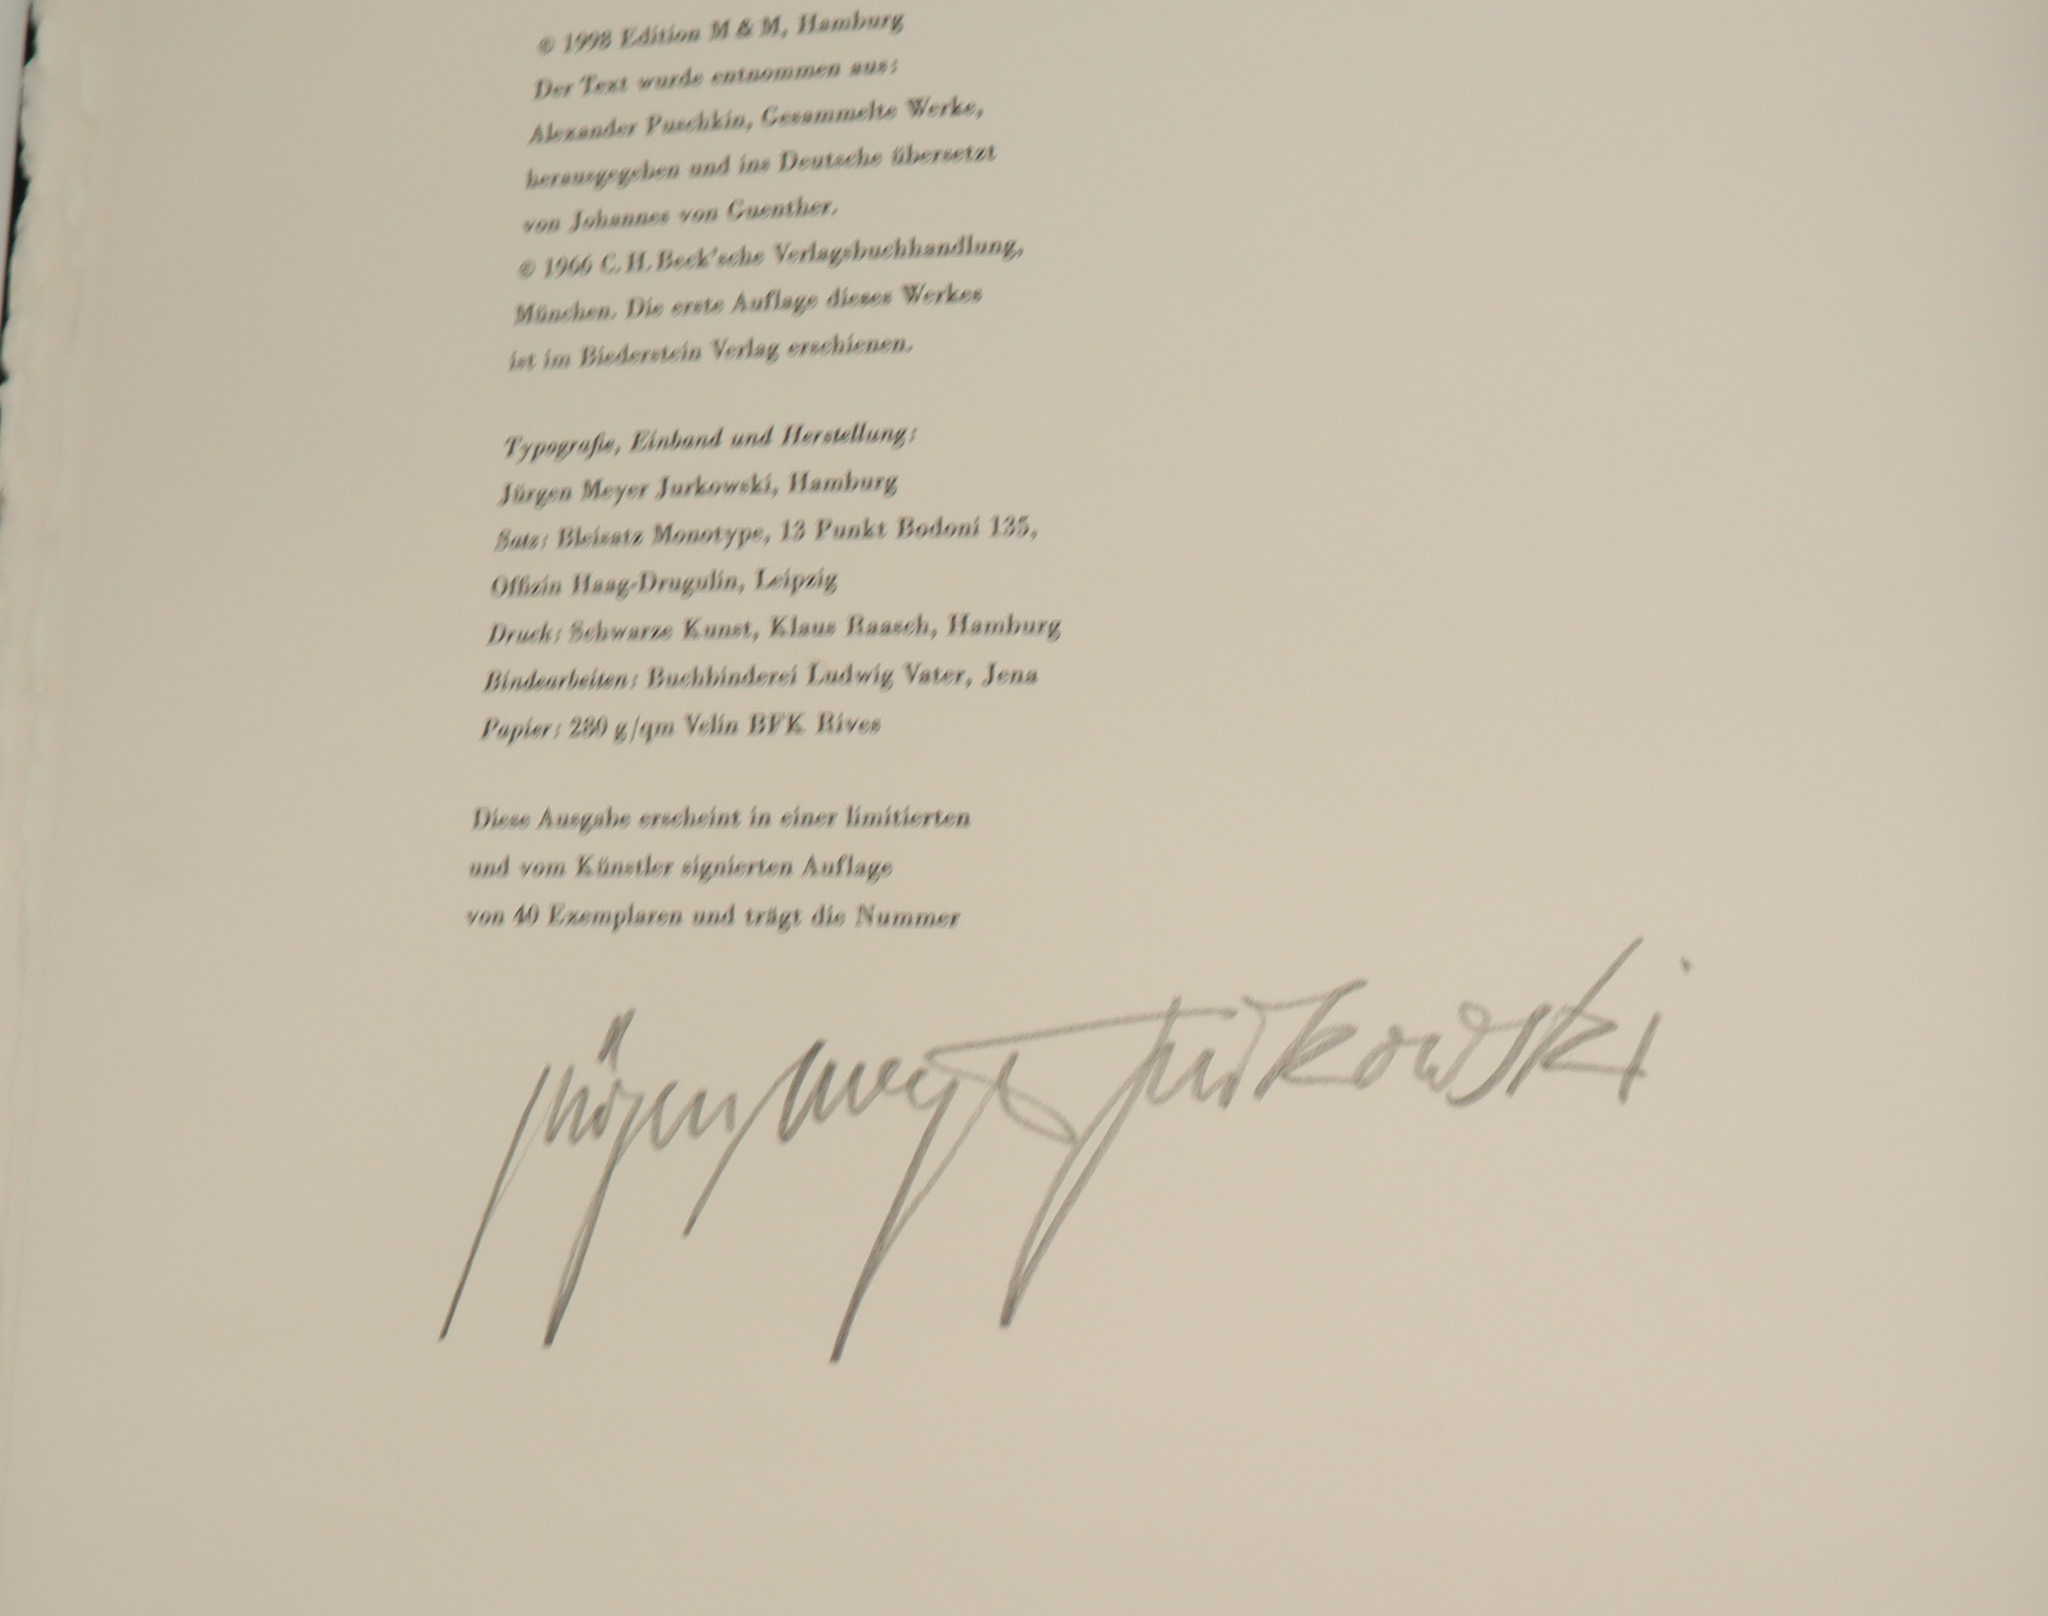 © 1998 Edition M & M, Hamburg
Der Text wurde entnommen aus:
Alexander Puschkin, Gesammelte Werke,
herausgegeben und ins Deutsche übersetzt
von Johannes von Guenther.
© 1966 C. H. Beck'sche Verlagsbuchhandlung,
München. Die erste Auflage dieses Werkes
ist im Biederstein Verlag erschienen.
Typografie, Einband und Herstellung:
Jürgen Meyer Jurkowski, Hamburg
Satz: Bleisatz Monotype, 13 Punkt Bodoni 135,
Offizin Haag-Drugulin, Leipzig
Druck: Schwarze Kunst, Klaus Raasch, Hamburg
Bindearbeiten: Buchbinderei Ludwig Vater, Jena
Papier: 280 g/qm Velin BFK Rives
Diese Ausgabe erscheint in einer limitierten
und vom Künstler signierten Auflage
von 40 Exemplaren und trägt die Nummer
Jürgen Meyer Jurkowski